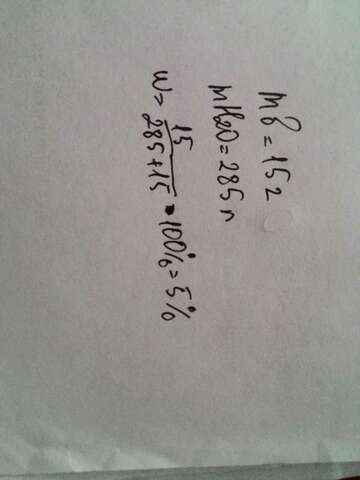 mв = 15 г
mH2O = 285 г
w = 15 / 285+15 • 100% = 5%